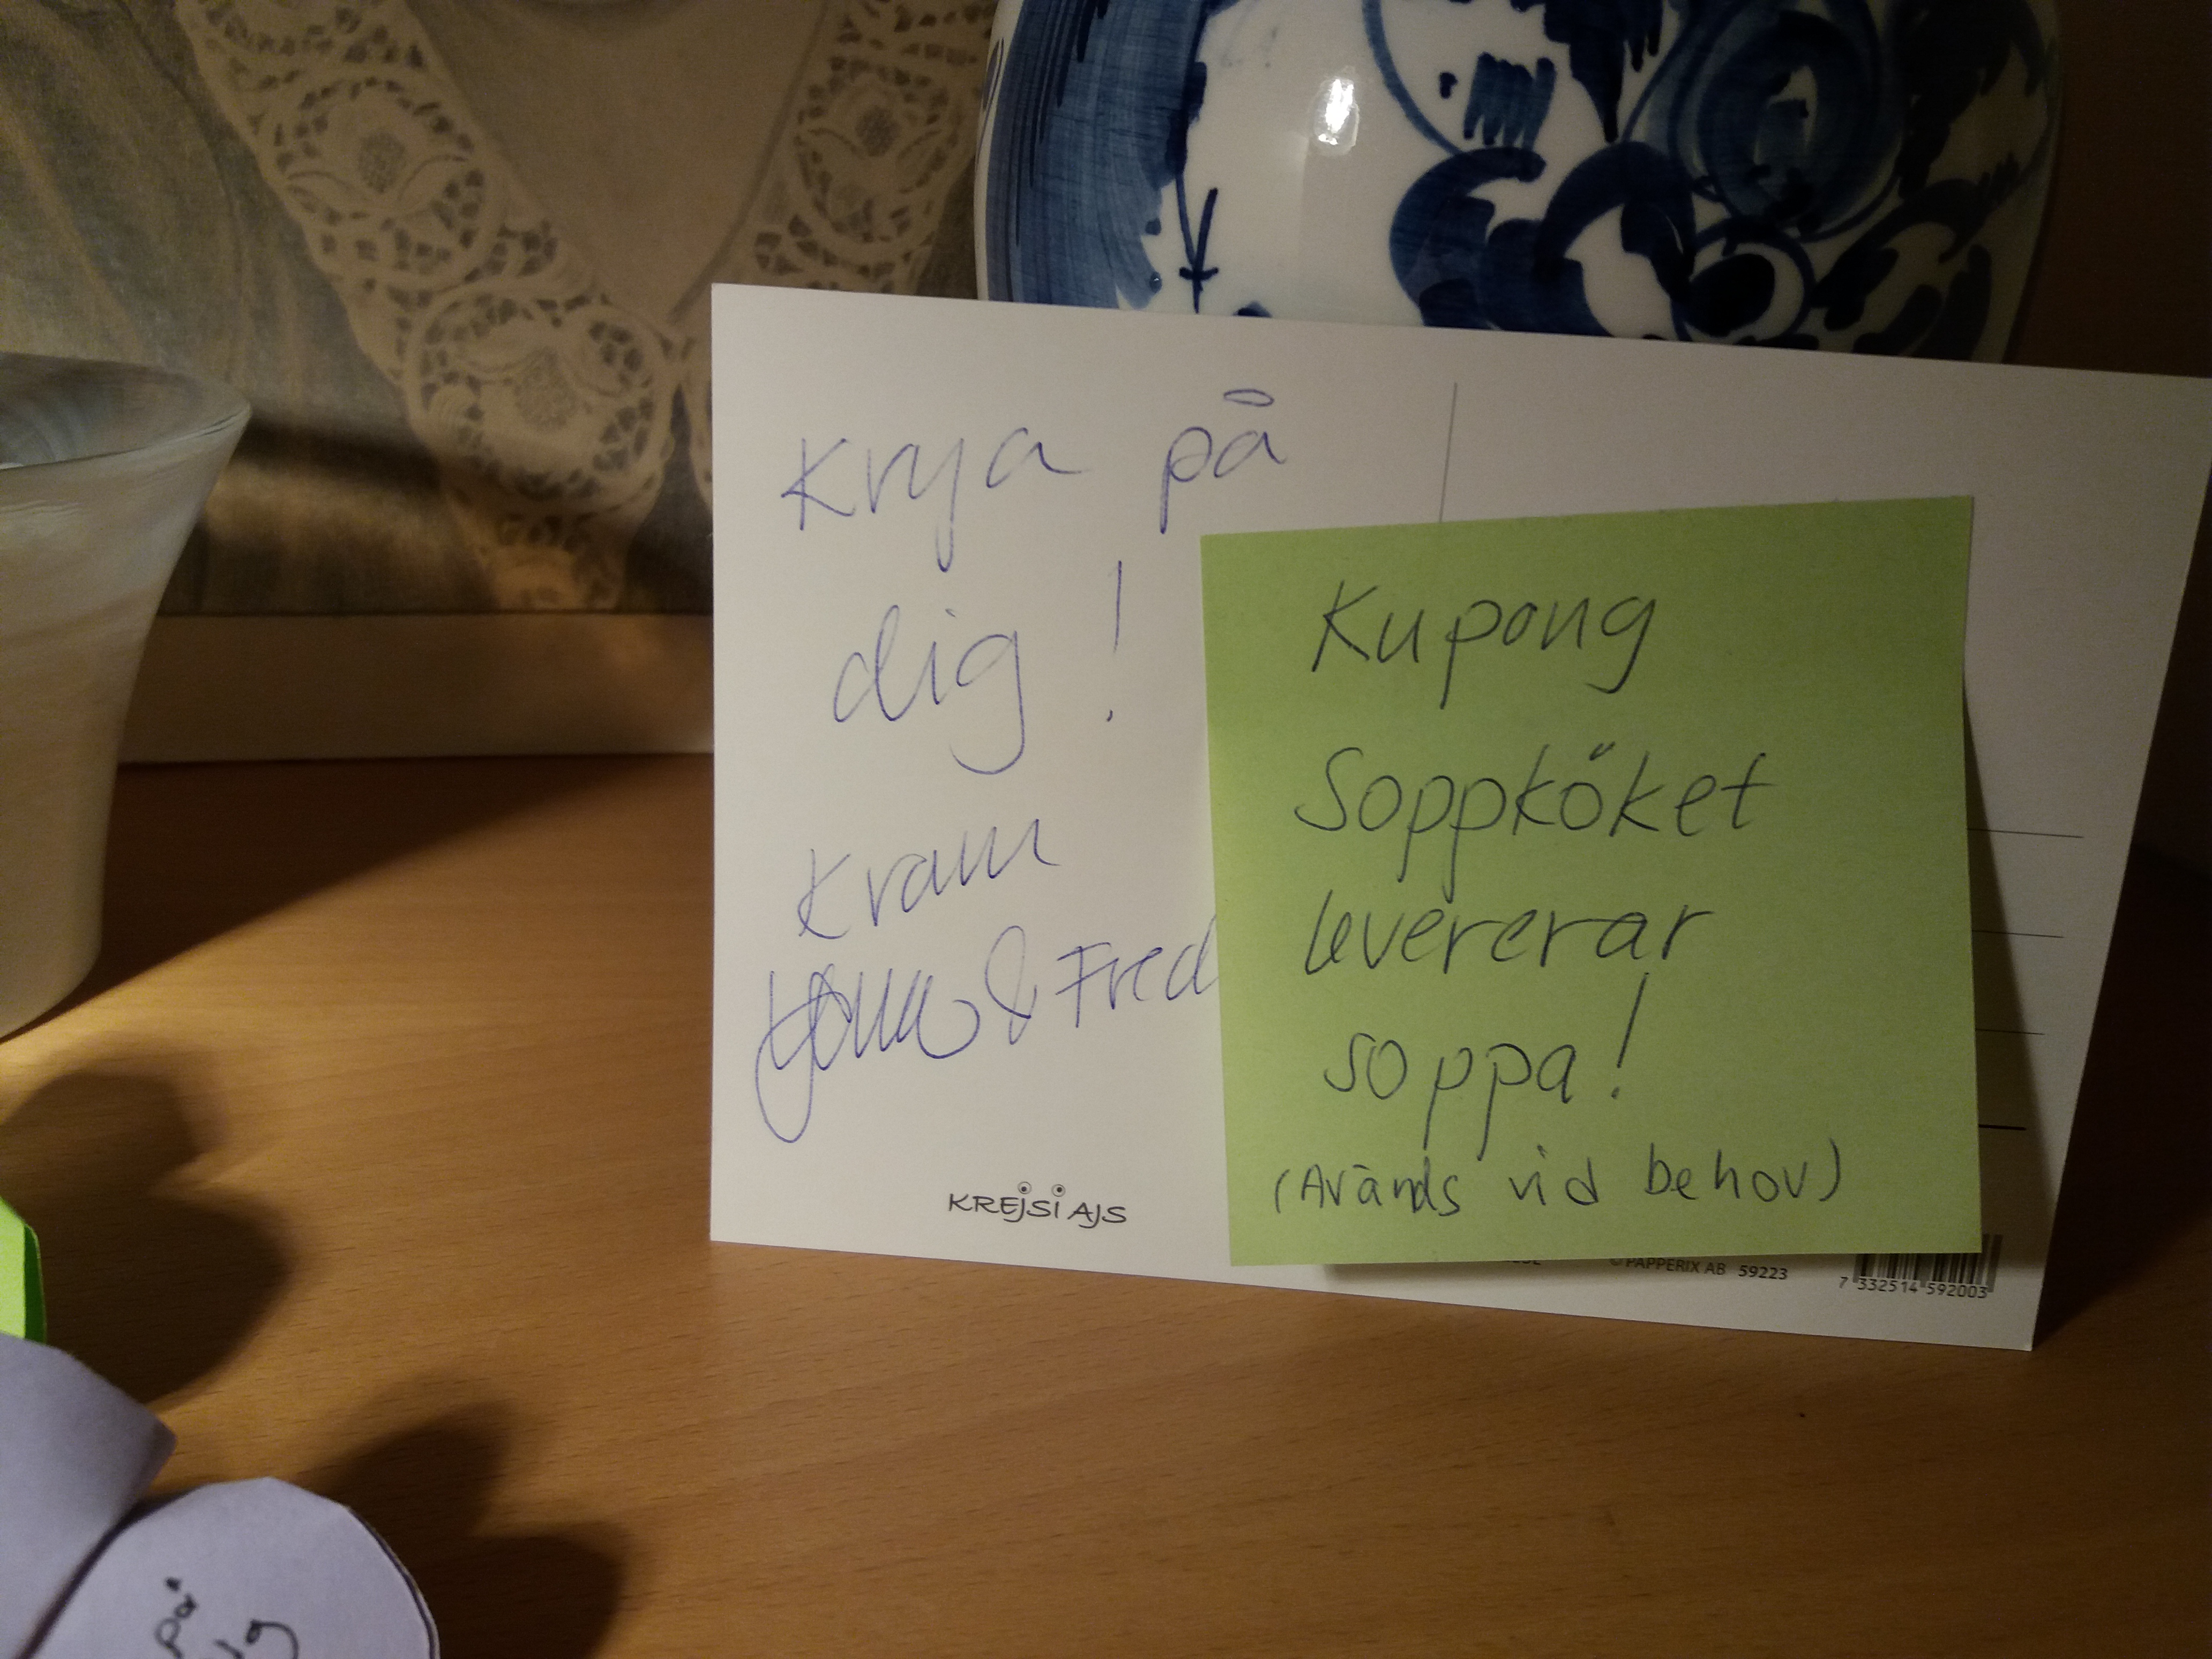 Krya på
dig!
Kram
& Fred
KREJSI AJS
Kupong
Soppköket
levererar
soppa!
(Avänds vid behov)
© PAPPERIX AB 59223
7 332514 592003
på